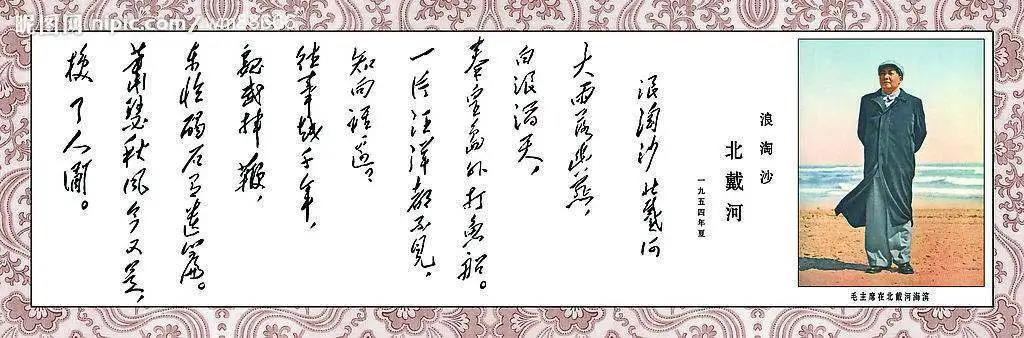 昵图网 nipic.com
浪淘沙
北戴河
一九五四年夏
毛主席在北戴河海滨
浪淘沙 北戴河
大雨落幽燕，
白浪滔天，
秦皇岛外打鱼船。
一片汪洋都不见，
知向谁边？
往事越千年，
魏武挥鞭，
东临碣石有遗篇。
萧瑟秋风今又是，
换了人间。